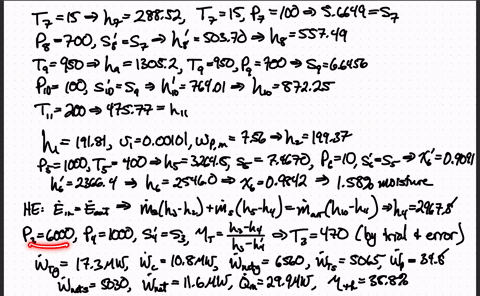 T₇=15 ⇒ h₇=288.52, T₇=15, P₇=100 ⇒ 5.6649=S₇
P₈=700, S₈'=S₇ ⇒ h₈'=503.70 ⇒ h₈=557.49
T₉=950 ⇒ h₉=1305.2, T₉=950, P₉=700 ⇒ S₉=6.6456
P₁₀=100, S₁₀'=S₉ ⇒ h₁₀'=764.01 ⇒ h₁₀=872.25
T₁₁=200 ⇒ 475.77=h₁₁
h₁=191.81, υ₁=0.00101, w_P,in=7.56 ⇒ h₂=199.37
P₅=1000, T₅=400 ⇒ h₅=3264.5, s₅=7.4670, P₆=10, S₆'=S₅ ⇒ x₆'=0.9091
h₆'=2366.4 ⇒ h₆=2546.0 ⇒ x₆=0.9842 ⇒ 1.58% moisture
HE: Ė_in=Ė_out ⇒ ṁ_s(h₃-h₄)+ṁ_s(h₅-h₄)=ṁ_air(h₁₀-h₁₁) ⇒ h₄=2967.8
P₃=6000, P₄=1000, S₄'=S₃, η_T=(h₃-h₄)/(h₃-h₄') ⇒ T₃=470 (by trial & error)
Ẇ_Tg=17.3MW, Ẇ_c=10.8MW, Ẇ_netg=6560, Ẇ_Ts=5065, Ẇ_p=34.8
Ẇ_nets=5030, Ẇ_net=11.6MW, Q̇_in=29.9MW, η_th=38.8%